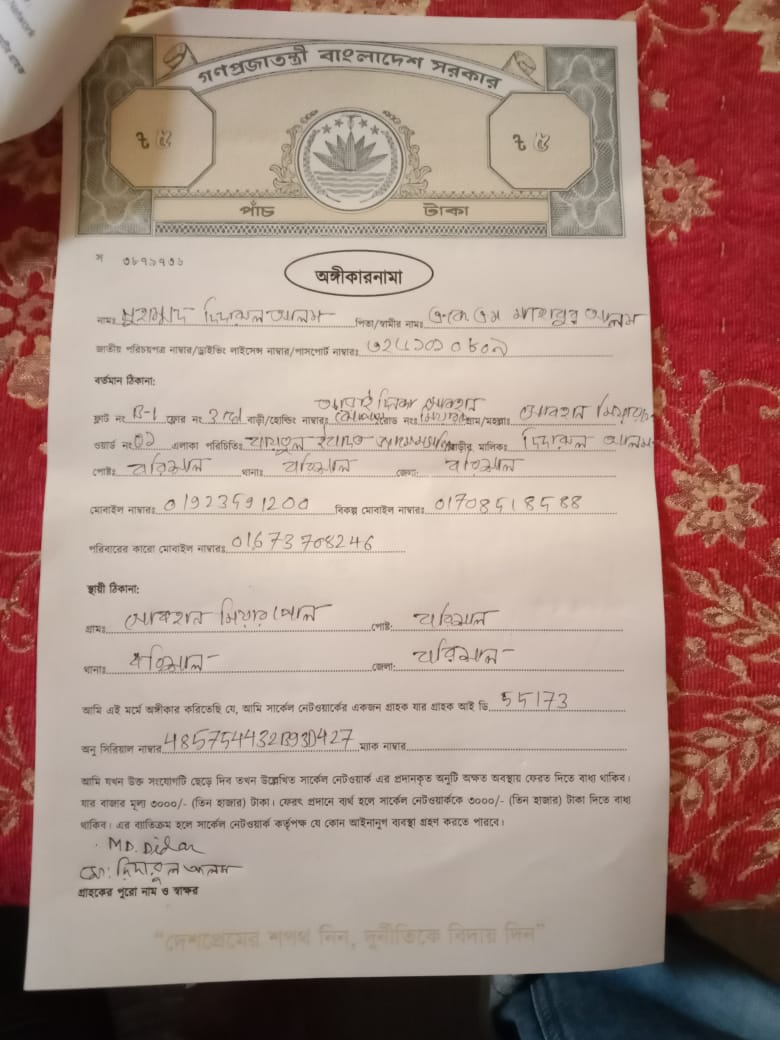 গণপ্রজাতন্ত্রী বাংলাদেশ সরকার
৳ ৫ ৳ ৫
পাঁচ টাকা
স ৩৮৭১৭৩৮
অঙ্গীকারনামা
নামঃ মুহাম্মাদ দিদারুল আলম পিতা/স্বামীর নামঃ এ.কে এম মাহাবুবুর আলম
জাতীয় পরিচয়পত্র নাম্বার/ড্রাইভিং লাইসেন্স নাম্বার/পাসপোর্ট নাম্বারঃ
বর্তমান ঠিকানা:
ফ্লাট নং B-1 ফ্লোর নং 3rd বাড়ী/হোল্ডিং নাম্বারঃ রোড নংঃ গ্রাম/মহল্লাঃ
ওয়ার্ড নং এলাকা পরিচিতিঃ বাড়ীর মালিকঃ দিদারুল আলম
পোষ্টঃ বরিশাল থানাঃ বরিশাল জেলা: বরিশাল
মোবাইল নাম্বারঃ 01923591200 বিকল্প মোবাইল নাম্বারঃ 01708518588
পরিবারের কারো মোবাইল নাম্বারঃ 01673708246
স্থায়ী ঠিকানা:
গ্রামঃ পোষ্ট: বরিশাল
থানাঃ বরিশাল জেলা: বরিশাল
আমি এই মর্মে অঙ্গীকার করিতেছি যে, আমি সার্কেল নেটওয়ার্কের একজন গ্রাহক যার গ্রাহক আই ডি 55173
অনু সিরিয়াল নাম্বার ম্যাক নাম্বার
আমি যখন উক্ত সংযোগটি ছেড়ে দিব তখন উল্লেখিত সার্কেল নেটওয়ার্ক এর প্রদানকৃত অনুটি অক্ষত অবস্থায় ফেরত দিতে বাধ্য থাকিব।
যার বাজার মূল্য ৩০০০/- (তিন হাজার) টাকা। ফেরৎ প্রদানে ব্যর্থ হলে সার্কেল নেটওয়ার্ককে ৩০০০/- (তিন হাজার) টাকা দিতে বাধ্য
থাকিব। এর ব্যতিক্রম হলে সার্কেল নেটওয়ার্ক কর্তৃপক্ষ যে কোন আইনানুগ ব্যবস্থা গ্রহণ করতে পারবে।
MD. Didar
মো: দিদারুল আলম
গ্রাহকের পুরো নাম ও স্বাক্ষর
"দেশপ্রেমের শপথ নিন, দুর্নীতিকে বিদায় দিন"